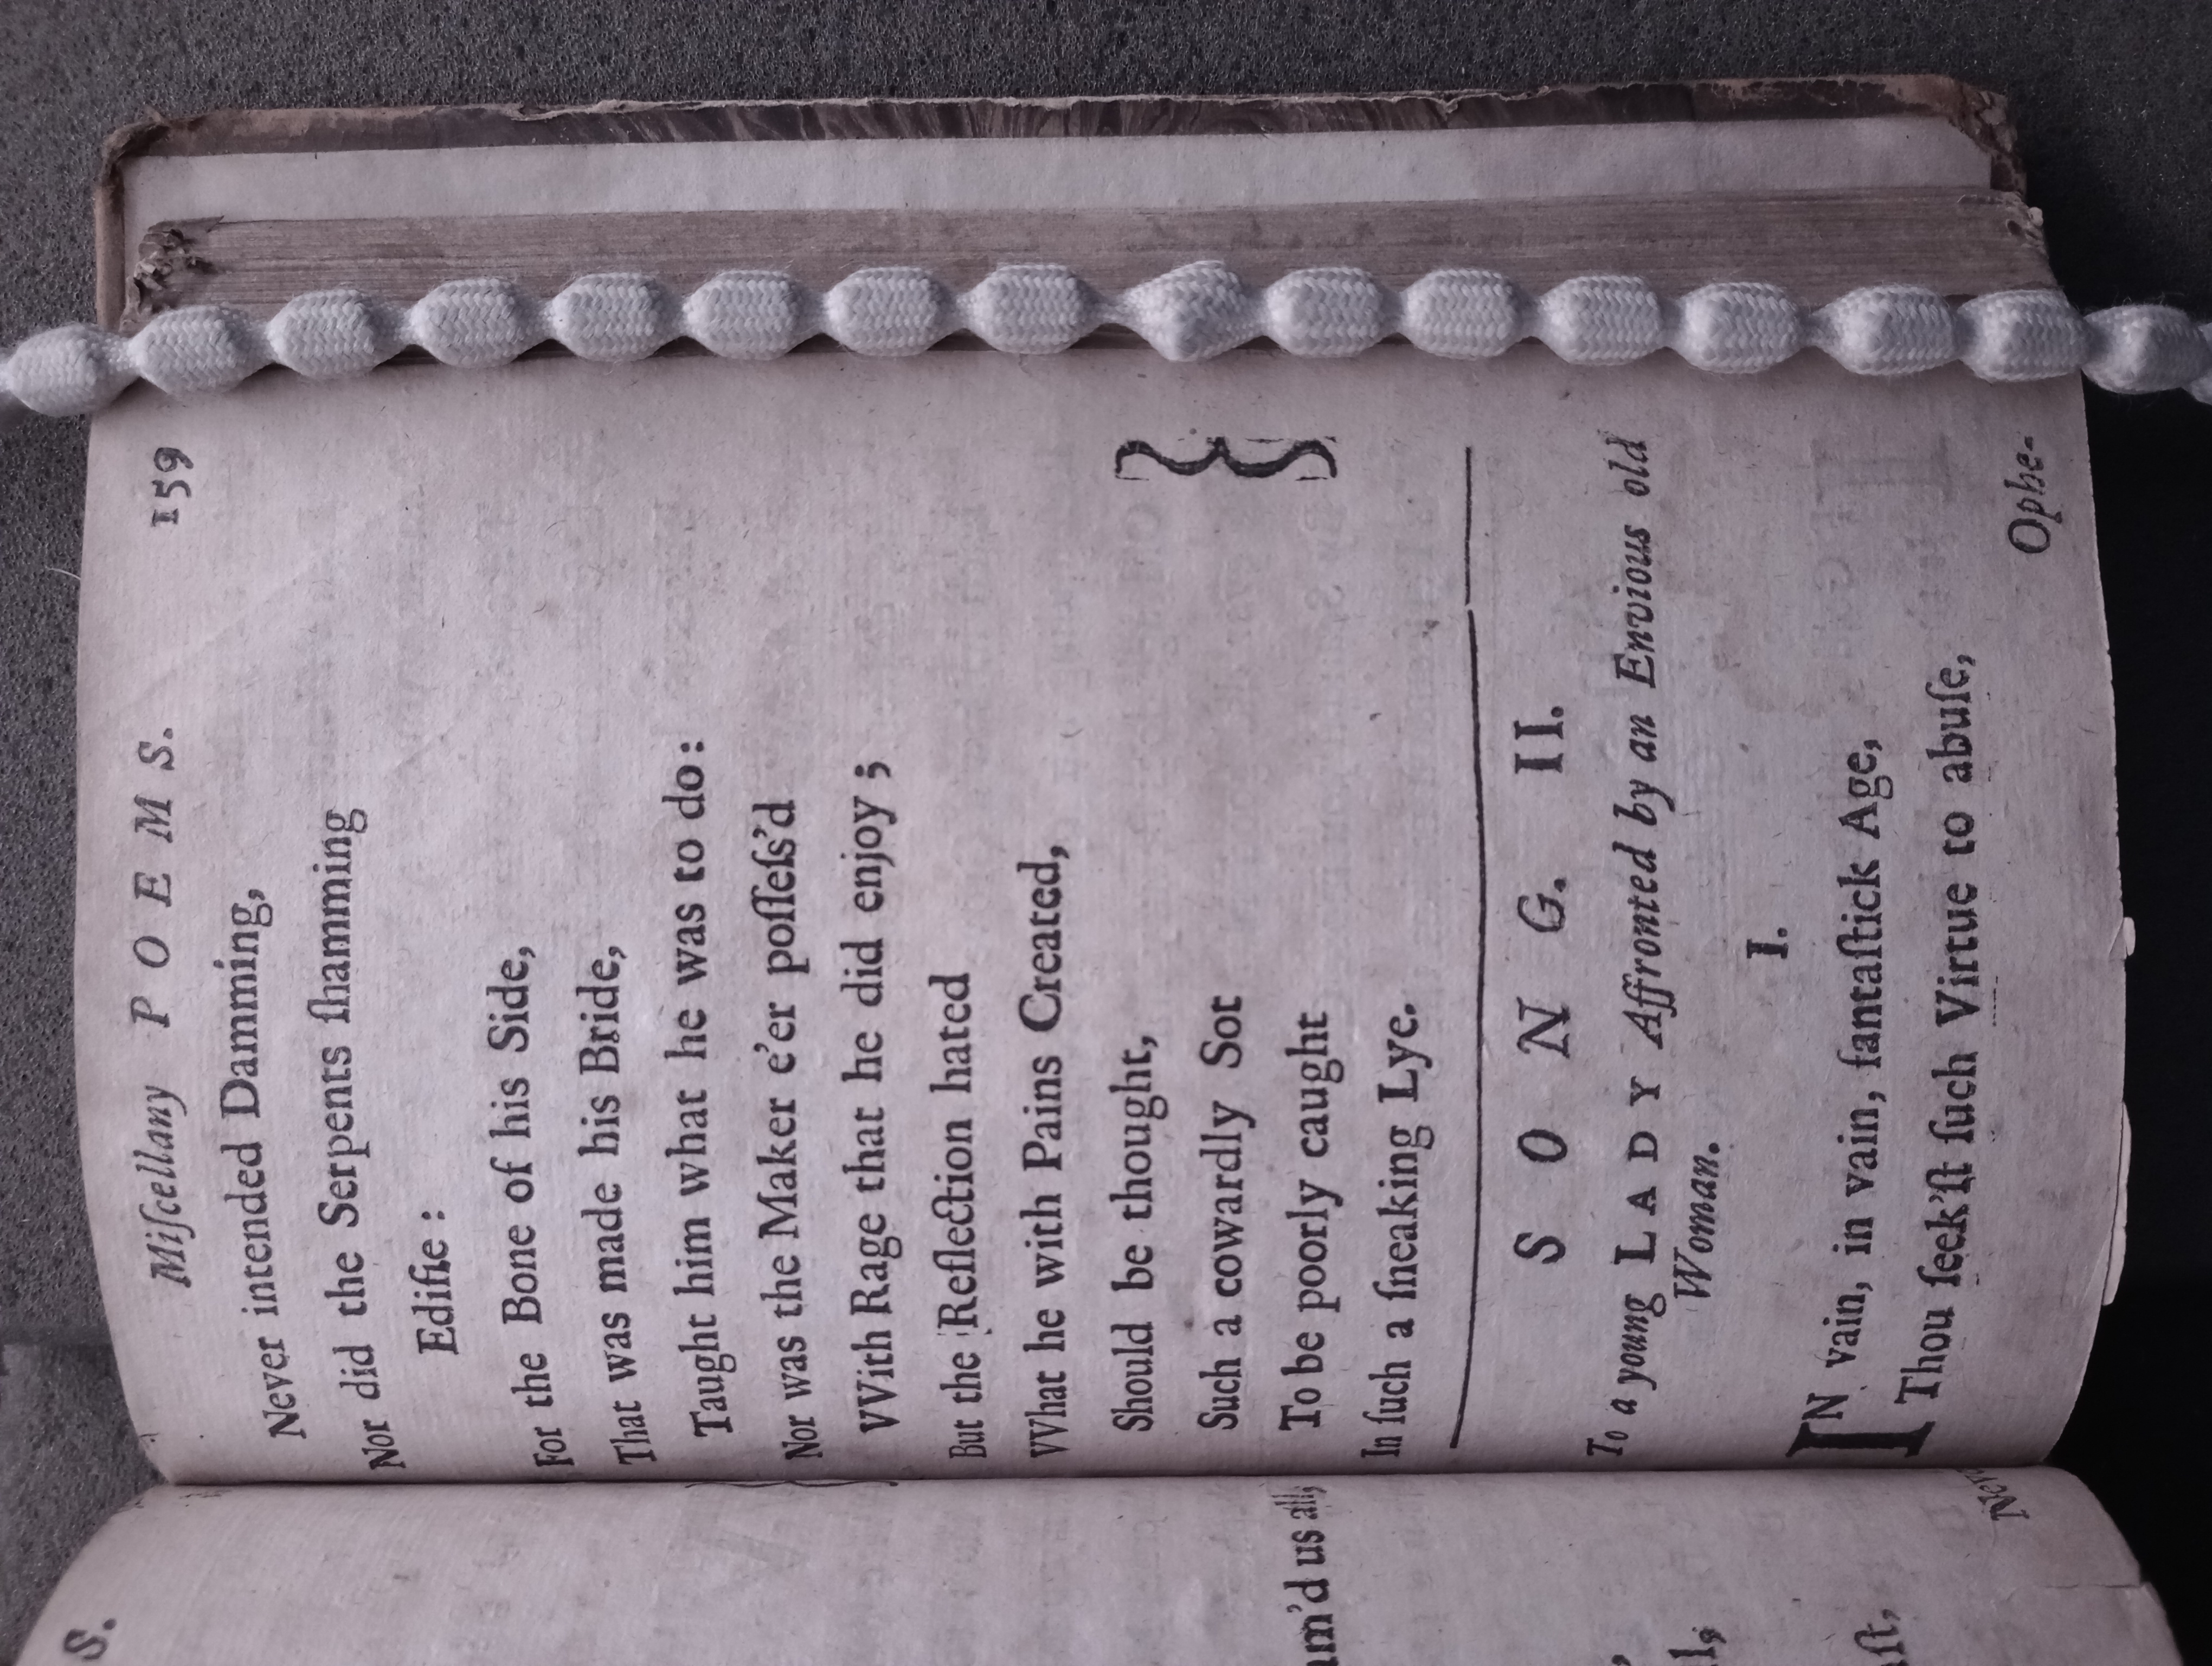 Miſcellany POEMS. 159
Never intended Damming,
Nor did the Serpents ſhamming
Edifie :
For the Bone of his Side,
That was made his Bride,
Taught him what he was to do:
Nor was the Maker e'er poſſeſs'd
VVith Rage that he did enjoy ;
But the Reflection hated
VVhat he with Pains Created,
Should be thought,
Such a cowardly Sot
To be poorly caught
In ſuch a ſneaking Lye.
SONG. II.
To a young LADY Affronted by an Envious old
Woman.
I.
IN vain, in vain, fantaſtick Age,
Thou ſeek'ſt ſuch Virtue to abuſe,
Ophe-
S.
am'd us all,